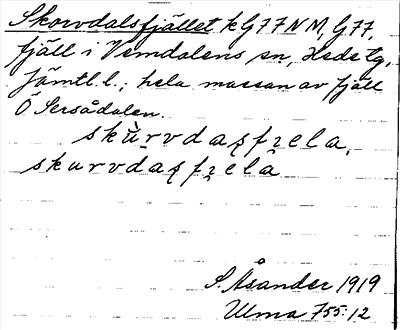 Skorvdalsfjället k G77NM, G77,
fjäll i Vemdalens sn, Hede tg,
Jämtl. l.; hela massan av fjäll
Ö Sersådalen.
skùrvdaʂfɪela,
skurvdaʂfɪelà
S. Åsander 1919
Ulma 755:12